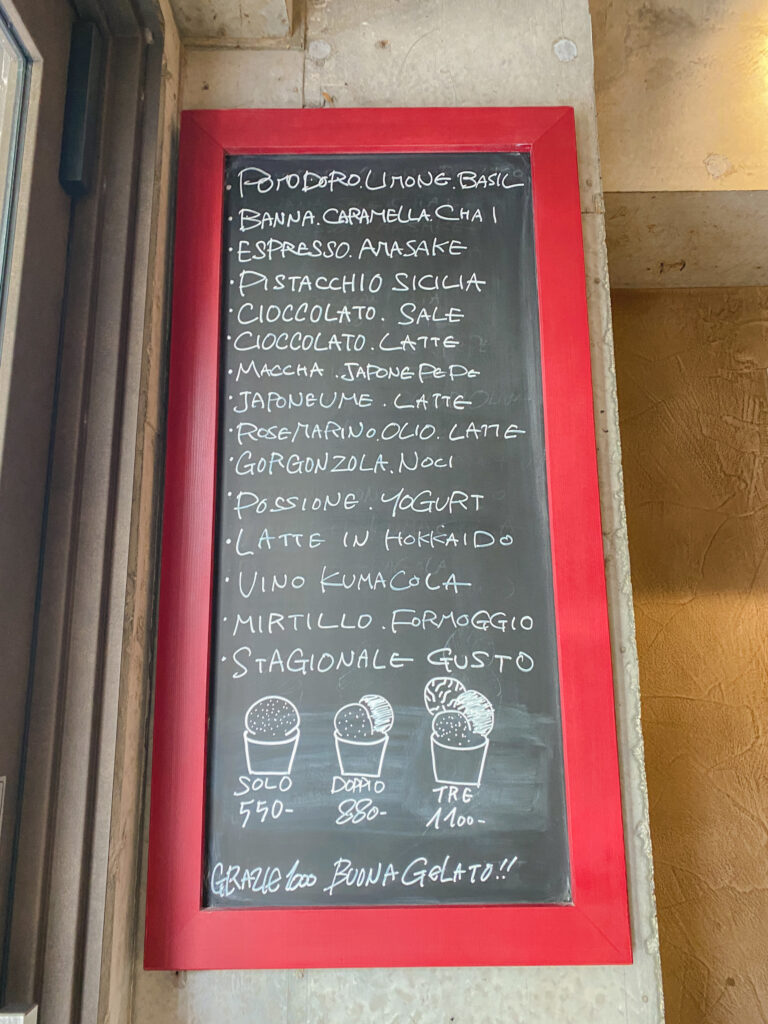 · POMODORO. LIMONE. BASIL
· BANNA. CARAMELLA. CHAI
· ESPRESSO. AMASAKE
· PISTACCHIO SICILIA
· CIOCCOLATO. SALE
· CIOCCOLATO. LATTE
· MACCHA. JAPONE PEPE
· JAPONE UME. LATTE
· ROSEMARINO. OLIO. LATTE
· GORGONZOLA. NOCI
· POSSIONE. YOGURT
· LATTE IN HOKKAIDO
· VINO KUMACOLA
· MIRTILLO. FORMOGGIO
· STAGIONALE GUSTO
SOLO DOPPIO TRE
550- 880- 1100-
GRAZIE 1000 BUONA GELATO!!